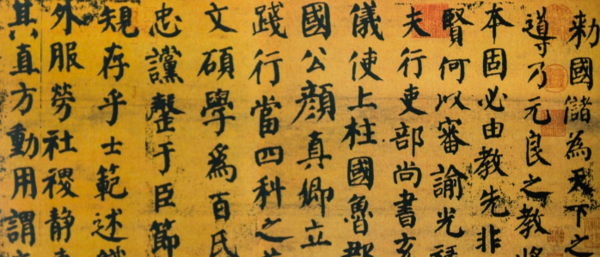 勑國儲為天下之
導乃元良之教將
本固必由教先非
賢何以審諭光
夫行吏部尚書充
儀使上柱國魯郡
國公顏真卿立
踐行當四科之
文碩學爲百氏
忠讜罄于臣節
規存乎士範述
外服勞社稷靜
其直方動用謂